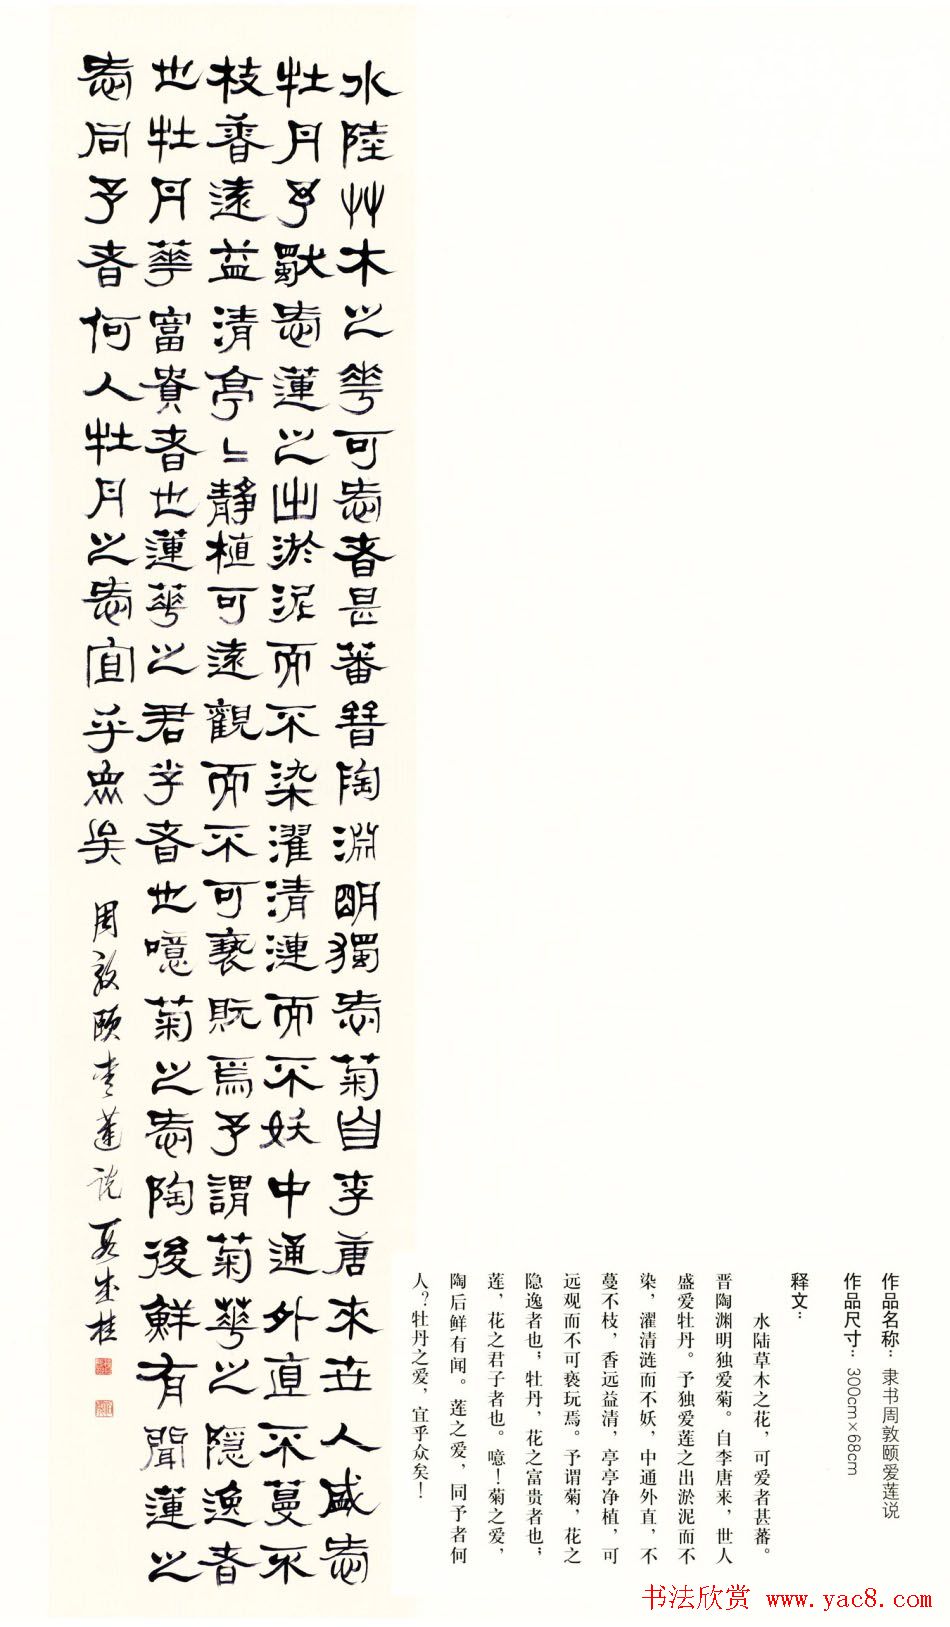 作品名称：隶书周敦颐爱莲说
作品尺寸：300cm×68cm
释文：
水陆草木之花，可爱者甚蕃。
晋陶渊明独爱菊。自李唐来，世人
盛爱牡丹。予独爱莲之出淤泥而不
染，濯清涟而不妖，中通外直，不
蔓不枝，香远益清，亭亭净植，可
远观而不可亵玩焉。予谓菊，花之
隐逸者也；牡丹，花之富贵者也；
莲，花之君子者也。噫！菊之爱，
陶后鲜有闻。莲之爱，同予者何
人？牡丹之爱，宜乎众矣！
水陸艸木之華可㤅者甚蕃晉陶淵明獨㤅菊自李唐来世人盛㤅
牡丹予獨㤅蓮之出淤泥而不染濯清漣而不妖中通外直不蔓不
枝香遠益清亭〻靜植可遠觀而不可褻翫焉予謂菊華之隱逸者
也牡丹華富貴者也蓮華之君子者也噫菊之㤅陶後鮮有聞蓮之
㤅同予者何人牡丹之㤅宜乎衆矣 周敦頤愛蓮说
书法欣赏 www.yac8.com